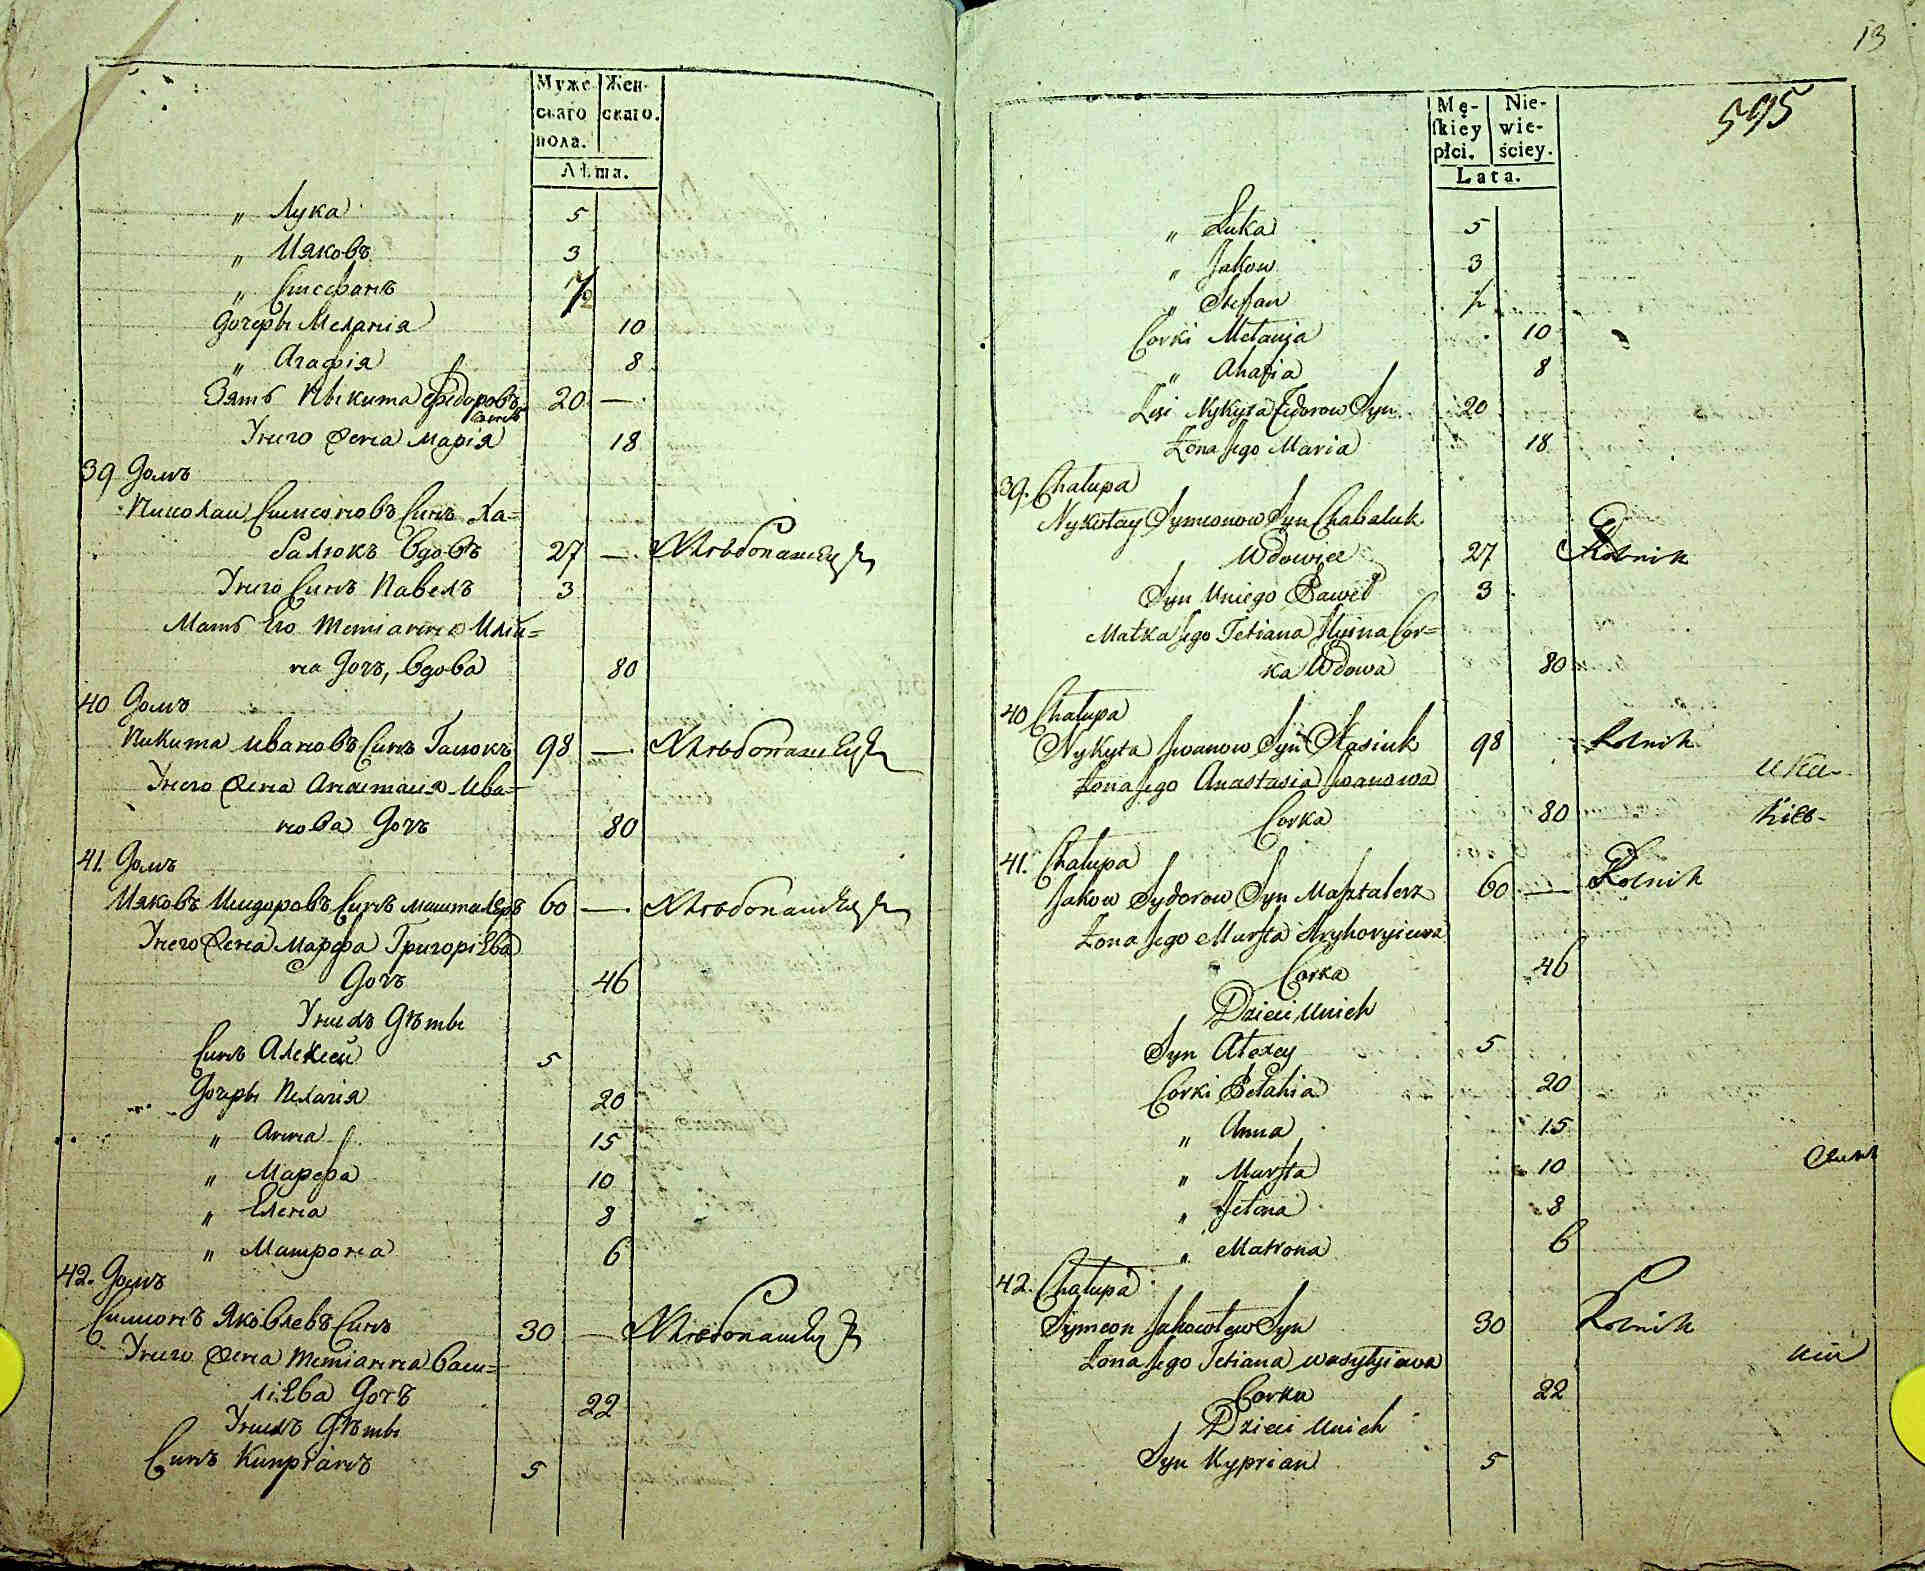 Муже- Жен-
скаго скаго.
пола.
Лѣта.
„ Лука 5
„ Ияковъ 3
„ Стефанъ 1/2
Дочеры Меланія 10
„ Агафія 8
Зять Никита Федоровъ 20 —
Синъ
Унего Жена Марія 18
39 Домъ
Николай Симеоновъ Синъ Ха=
балюкъ Вдовъ 27 — Хлѣбопашецъ
Унего Синъ Павелъ 3
Мать Его Тетіанна Илїи=
на Дочъ, Вдова 80
40 Домъ
Никита Ивановъ Синъ 98 — Хлѣбопашецъ
Унего Жена Анастасія Ива=
нова Дочъ 80
41. Домъ
Ияковъ Исидоровъ Синъ Машталеръ 60 — Хлѣбопашецъ
Унего Жена Марфа Григоріева
Дочъ 46
Унихъ Дѣти
Синъ Алексей 5
Дочеры Пелагія 20
„ Анна 15
„ Марфа 10
„ Елена 8
„ Матрона 6
42. Домъ
Симионъ Яковлевъ Синъ 30 — Хлѣбопашецъ
Унего Жена Тетіанна Васи=
ліева Дочъ 22
Унихъ Дѣти
Синъ Кипріанъ 5
13
595
Mę- Nie-
skiey wie-
płci. ściey.
Lata.
„ Łuka 5
„ Jakow 3
„ Stefan 1/2
Corki Mełanja 10
„ Ahafia 8
Zięć Nykyta Fedorow Syn 20
Żona Jego Maria 18
39. Chałupa
Nykołay Symeonow Syn Chabaluk
Wdowiec 27 Rolnik
Syn Uniego Paweł 3
Matka Jego Tetiana Jlyina Cor=
ka Wdowa 80
40 Chałupa
Nykyta Jwanow Syn Stasiuk 98 Rolnik
Żona Jego Anastasia Jwanowa
Corka 80
41. Chałupa
Jakow Sydorow Syn Masztalerz 60 — Rolnik
Żona Jego Marfta Hryhoryiewa
Corka 46
Dzieci Unich
Syn Ałexey 5
Corki Pełahia 20
„ Anna 15
„ Marfta 10
„ Jełena 8
„ Matrona 6
42. Chałupa
Symeon Jakowlew Syn 30 Rolnik
Żona Jego Tetiana Wasylyiewa
Corka 22
Dzieci Unich
Syn Kyprian 5